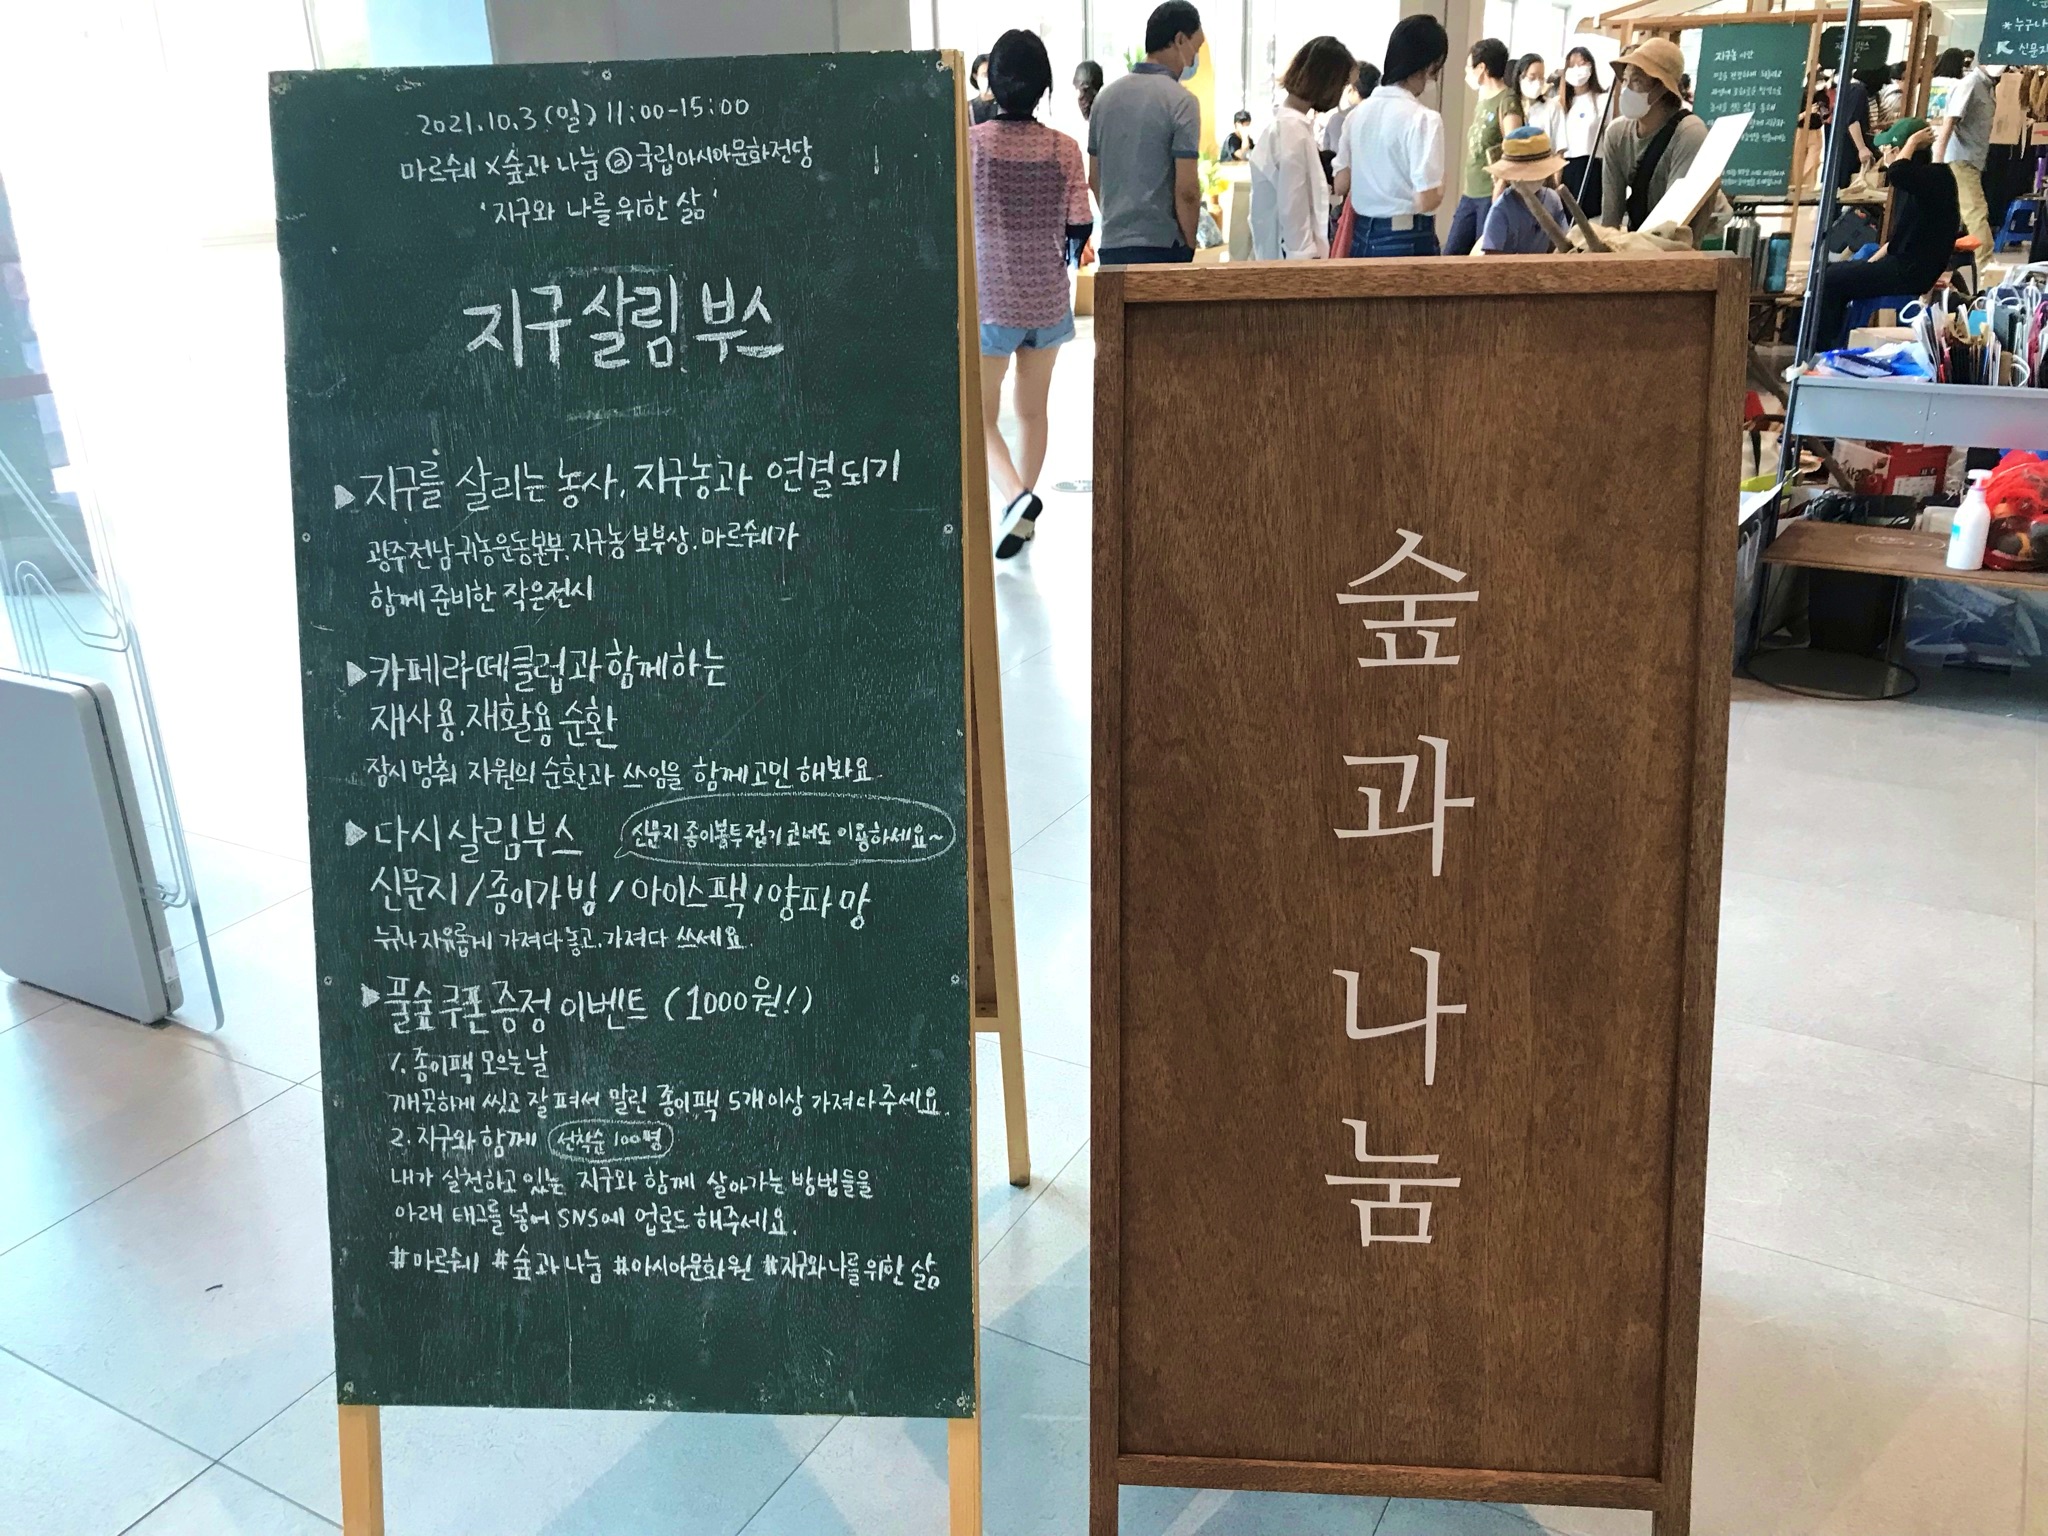 2021.10.3(일) 11:00-15:00
마르쉐 x 숲과 나눔 @ 국립아시아문화전당
'지구와 나를 위한 삶'
지구 살림 부스
▶ 지구를 살리는 농사, 지구농과 연결되기
광주전남귀농운동본부, 지구농 보부상, 마르쉐가
함께 준비한 작은전시
▶ 카페라떼클럽과 함께하는
재사용, 재활용 순환
잠시 멈춰 자원의 순환과 쓰임을 함께 고민 해봐요.
▶ 다시살림부스
신문지 종이봉투 접기 코너도 이용하세요~
신문지 / 종이가방 / 아이스팩 / 양파망
누구나 자유롭게 가져다 놓고, 가져다 쓰세요.
▶ 풀숲 쿠폰 증정 이벤트 (1000원!)
1. 종이팩 모으는 날
깨끗하게 씻고 잘 펴서 말린 종이팩 5개 이상 가져다 주세요.
2. 지구와 함께 선착순 100명
내가 실천하고 있는 지구와 함께 살아가는 방법들을
아래 태그를 넣어 SNS에 업로드 해주세요.
#마르쉐 #숲과나눔 #아시아문화원 #지구와나를위한삶
숲
과
나
눔
*누구나
신문지